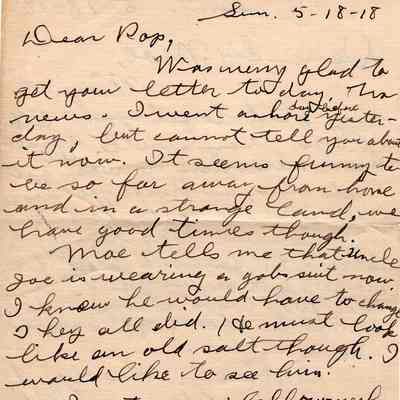 Sun. 5-18-18
Dear Pop,
Was very glad to
get your letter to day. Tho
news. I went ashore day before yester-
day, but cannot tell you about
it now. It seems funny to
be so far away from home
and in a strange land, we
have good times though.
Moe tells me that Uncle
Joe is wearing a gobs suit now.
I knew he would have to change
They all did. He must look
like an old salt though. I
would like to see him.